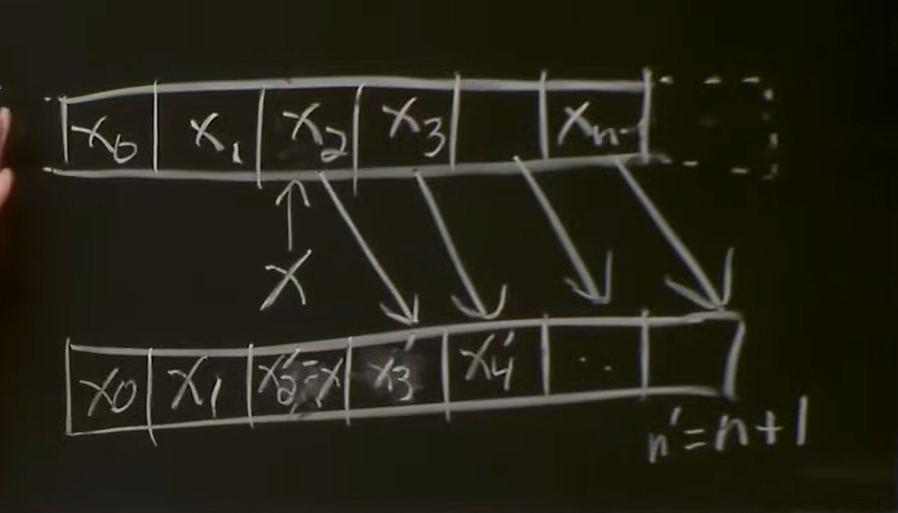 x₀ x₁ x₂ x₃ xₙ₋₁
x
x₀ x₁ x₂'=x x₃' x₄' . .
n'=n+1